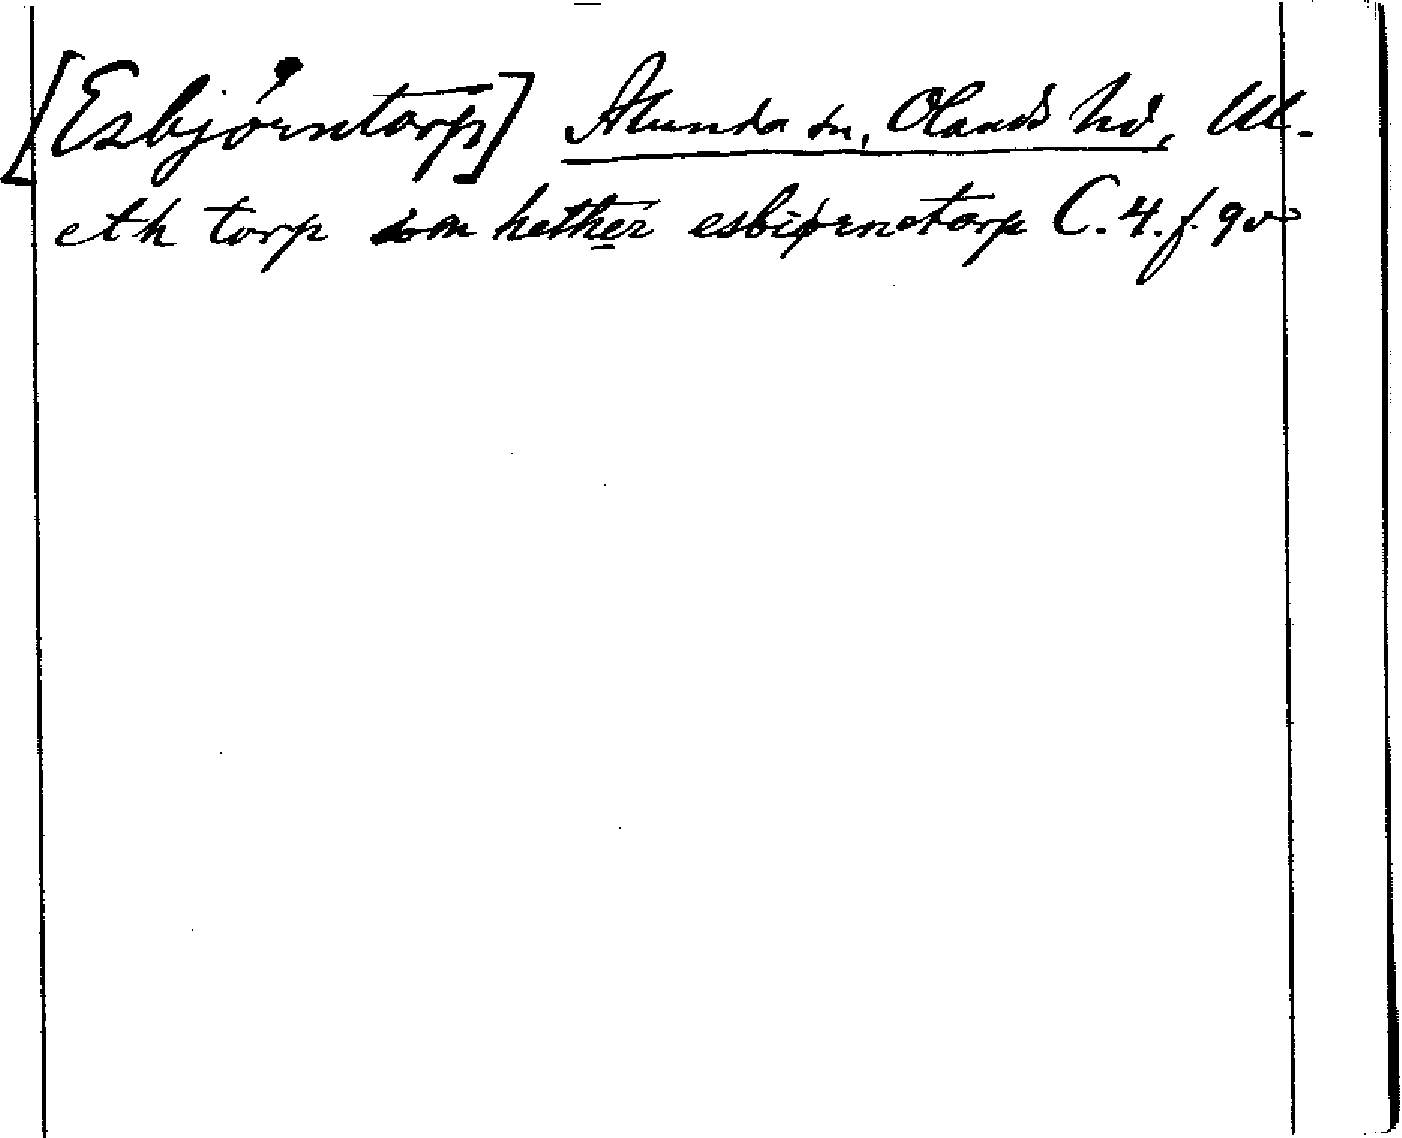 [Esbjörntorp] Alunda sn, Olands hd, Ul.
eth torp som hether esbiørnatorp C. 4. f. 9 vo